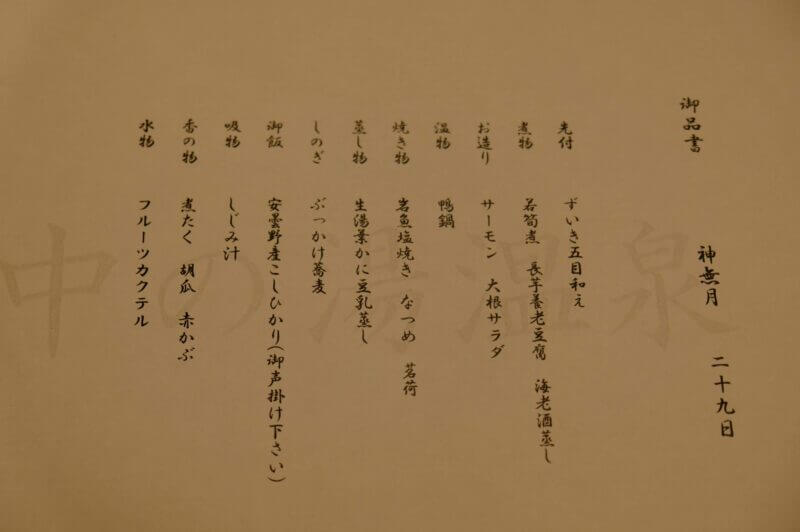 御品書
神無月 二十九日
先付 ずいき五目和え
煮物 若筍煮 長芋養老豆腐 海老酒蒸し
お造り サーモン 大根サラダ
温物 鴨鍋
焼き物 岩魚塩焼き なつめ 茗荷
蒸し物 生湯葉かに豆乳蒸し
しのぎ ぶっかけ蕎麦
御飯 安曇野産こしひかり(御声掛け下さい)
吸物 しじみ汁
香の物 煮たく 胡瓜 赤かぶ
水物 フルーツカクテル
中の湯温泉